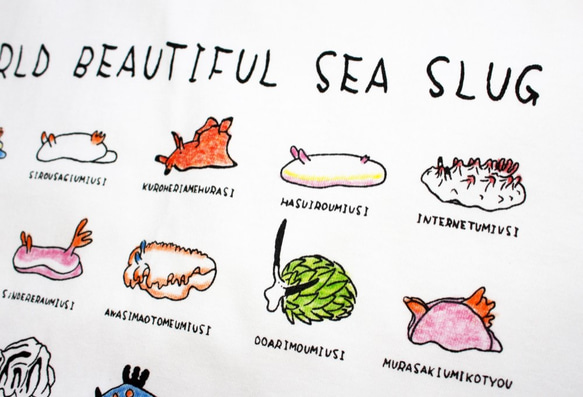 RLD BEAUTIFUL SEA SLUG
SIROUSAGIUMIUSI
KUROHERIAMEHURASI
HASUIROUMIUSI
INTERNETUMIUSI
SINDERERAUMIUSI
AWASIMAOTOMEUMIUSI
OOARIMOUMIUSI
MURASAKIUMIKOTYOU